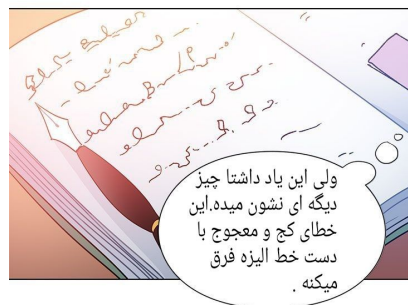 ولی این یاد داشتا چیز
دیگه ای نشون میده.این
خطای کج و معوجوج با
دست خط الیزه فرق
میکنه .